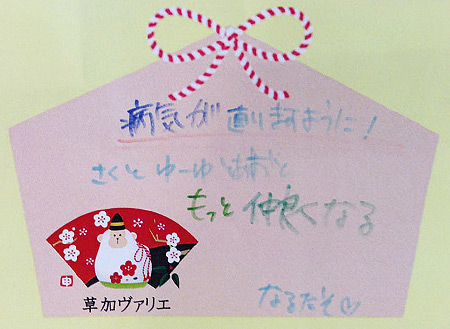 病気が直りますように!
さくと ゆーゆと
もっと仲良くなる
申
草加ヴァリエ
なるだぞ♡